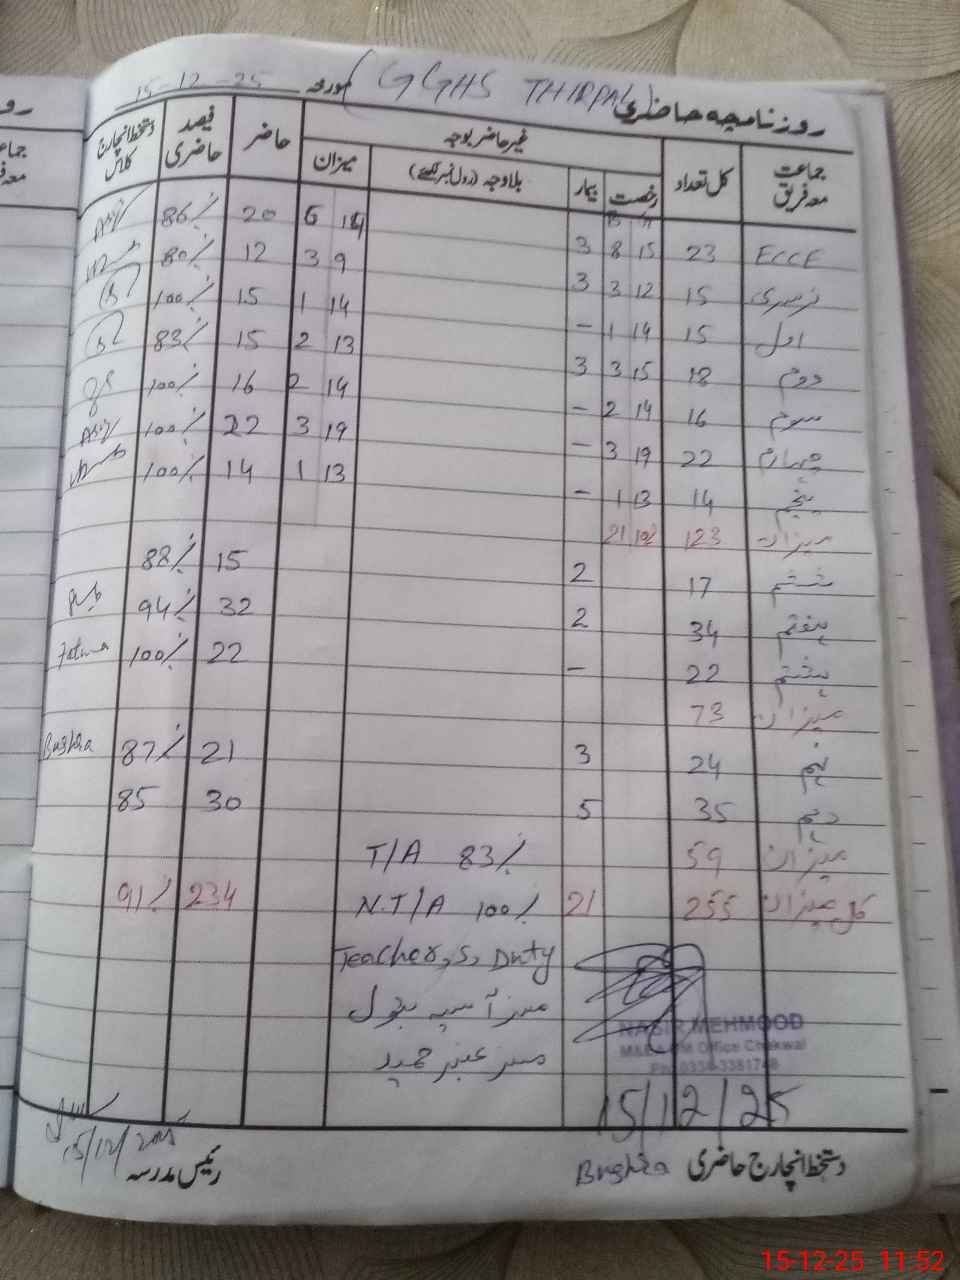 روزنامچہ حاضری (GGHS THIRPAL) مورخہ 15-12-25
جماعت معہ فریق کل تعداد غیر حاضر بوجہ حاضر فیصد حاضری دستخط انچارج کلاس
رخصت بیمار بلا وجہ (رول نمبر لکھیے) میزان
B G
ECCE 23 15 8 3 6 20 86٪
نرسری 15 12 3 3 9 3 12 80٪
اول 15 14 1 - 14 1 15 100٪
دوم 18 15 3 3 13 2 15 83٪
سوم 16 14 2 - 14 2 16 100٪
چہارم 22 19 3 - 19 3 22 100٪
پنجم 14 13 1 - 13 1 14 100٪
میزان 123 102 21
ششم 17 2 15 88٪
ہفتم 34 2 32 94٪
ہشتم 22 - 22 100٪ Fatima
میزان 73
نہم 24 3 21 87٪ Bushra
دہم 35 5 30 85
میزان 59 T/A 83٪
کل میزان 255 21 N.T/A 100٪ 234 91٪
Teacher,s, Duty
مسز آسیہ بتول
مسز عنبر حمید
NASIR MEHMOOD
M&EA DM Office Chakwal
15/12/25
دستخط انچارج حاضری Bushra رئیس مدرسہ
15/12/2025
15-12-25 11:52